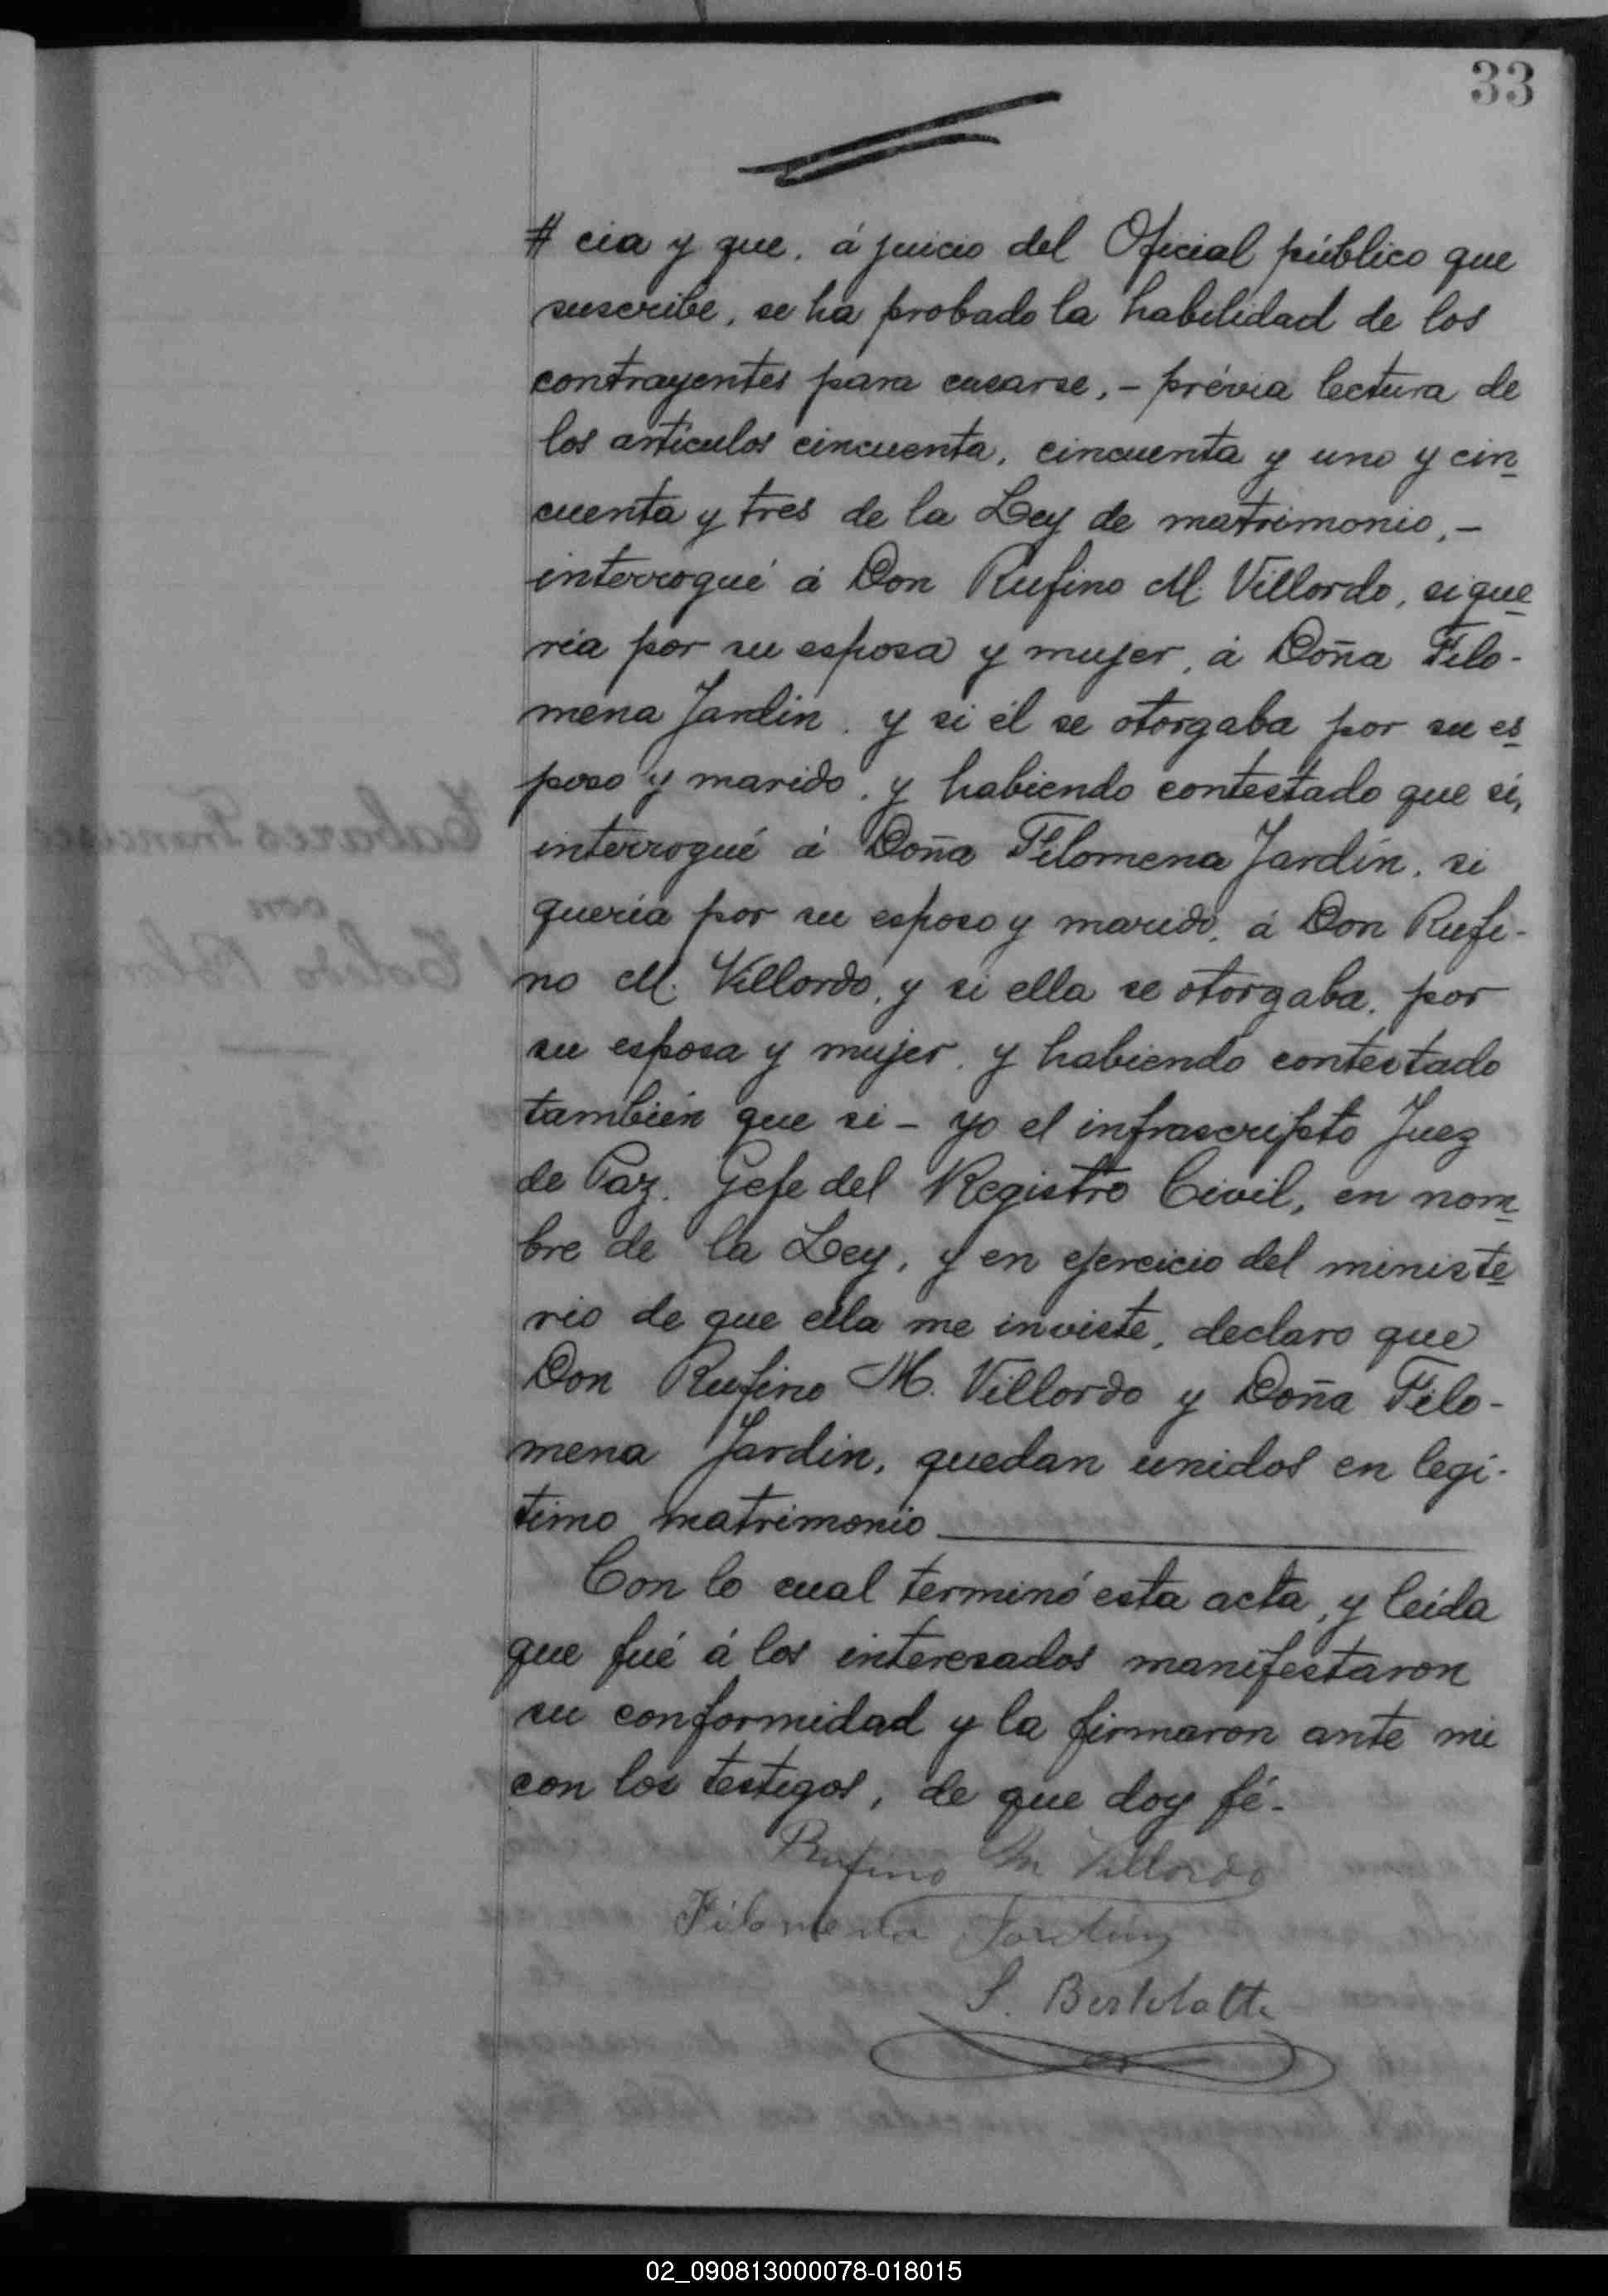 33
# cia y que, á juicio del Oficial público que
suscribe, se ha probado la habilidad de los
contrayentes para casarse, - prévia lectura de
los artículos cincuenta, cincuenta y uno y cin
cuenta y tres de la Ley de matrimonio, -
interrogué á Don Rufino M. Villordo, si que
ria por su esposa y mujer, á Doña Filo-
mena Jardin, y si él se otorgaba por su es
poso y marido, y habiendo contestado que si,
interrogué á Doña Filomena Jardín, si
queria por su esposo y marido, á Don Rufi-
no M. Villordo, y si ella se otorgaba, por
su esposa y mujer, y habiendo contestado
también que si - yo el infrascripto Juez
de Paz, Gefe del Registro Civil, en nom
bre de la Ley, y en ejercicio del ministe
rio de que ella me inviste, declaro que
Don Rufino M. Villordo y Doña Filo-
mena Jardin, quedan unidos en legi-
timo matrimonio
Con lo cual terminó esta acta, y leida
que fué á los interesados manifestaron
su conformidad y la firmaron ante mi
con los testigos, de que doy fé-
Rufino M Villordo
Filomena Jardin
S.
02_090813000078-018015